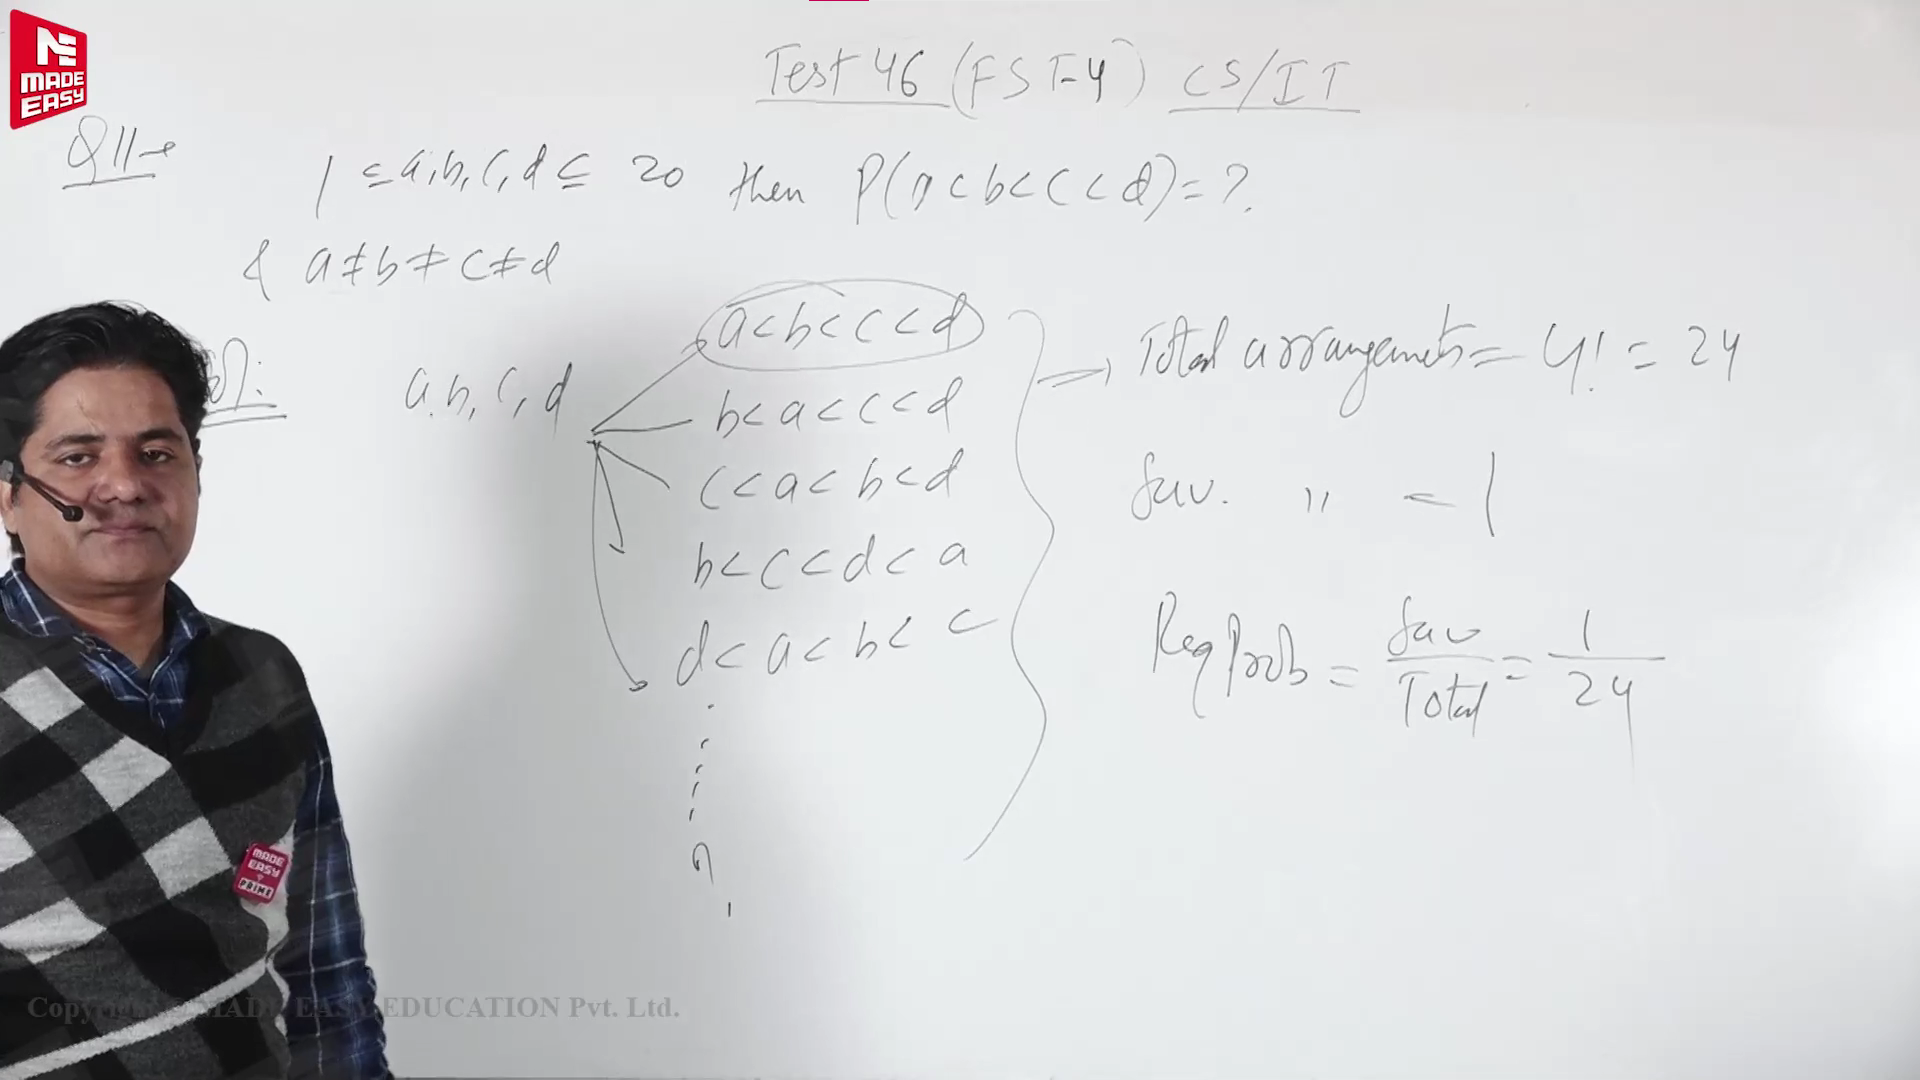 ME
MADE
EASY
Test 46 (FST-4) CS/IT
Q11→
1 ≤ a,b,c,d ≤ 20 then P(a<b<c<d)=?
& a≠b≠c≠d
a,b,c,d
a<b<c<d
b<a<c<d
c<a<b<d
b<c<d<a
d<a<b<c
→ Total arrangements = 4! = 24
fav. " = 1
Req Prob = fav/Total = 1/24
MADE
EASY
PRIME
Copyright MADE EASY EDUCATION Pvt. Ltd.